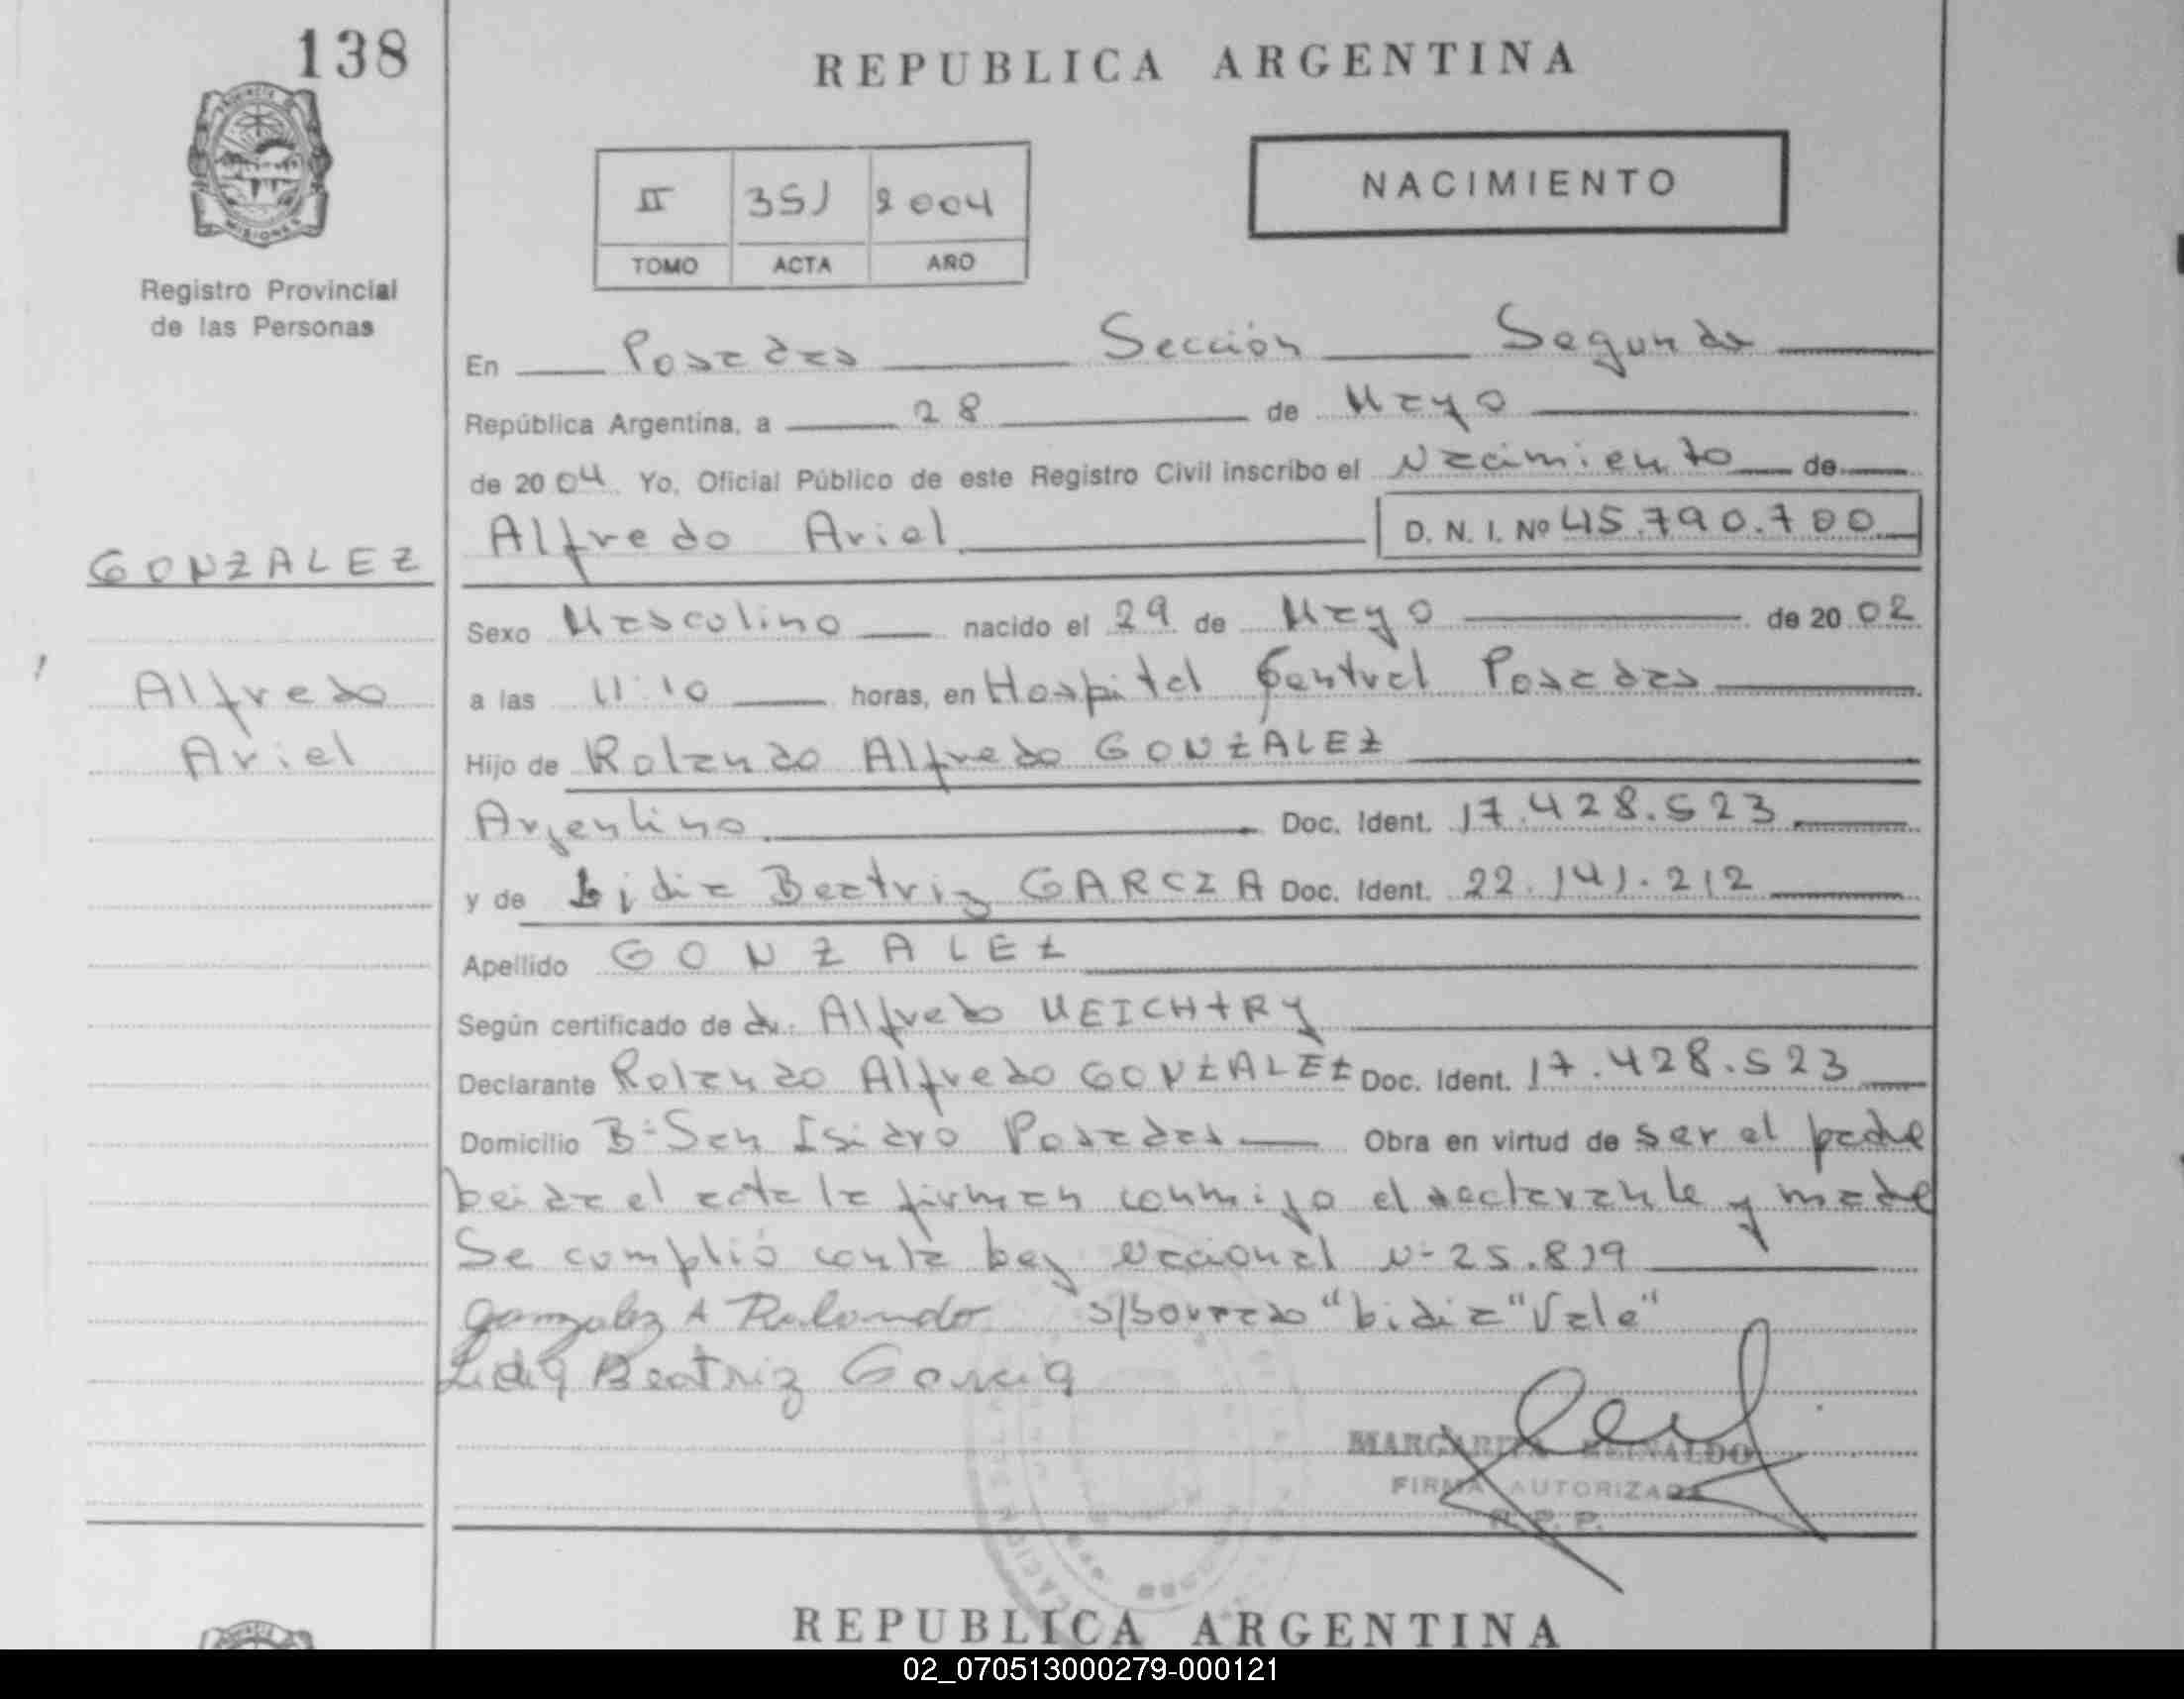 138
REPUBLICA ARGENTINA
NACIMIENTO
II 351 2004
TOMO ACTA AÑO
PROVINCIA DE MISIONES
Registro Provincial
de las Personas
En Posadas Sección Segunda
República Argentina, a 28 de Mayo
de 2004 Yo, Oficial Público de este Registro Civil inscribo el Nacimiento de
GONZALEZ
Alfredo Ariel D. N. I. Nº 45.790.700
Sexo Masculino nacido el 29 de Mayo de 2002
Alfredo
a las 11:10 horas, en Hospital Central Posadas
Ariel
Hijo de Rolando Alfredo GONZALEZ
Argentino Doc. Ident. 17.428.523
y de Lidia Beatriz GARCIA Doc. Ident. 22.141.212
Apellido GONZALEZ
Según certificado de dr. Alfredo MEICHTRY
Declarante Rolando Alfredo GONZALEZ Doc. Ident. 17.428.523
Domicilio Bº San Isidro Posadas Obra en virtud de ser el padre
Leida el acta la firman conmigo el declarante y madre
Se cumplió con la Ley Nacional Nº 25.819
Gonzalez A Rolando s/borrado "Lidia" "Vale"
Lidia Beatriz Garcia
MARGARITA REINALDO
FIRMA AUTORIZADA
R. P. P.
REPUBLICA ARGENTINA
02_070513000279-000121